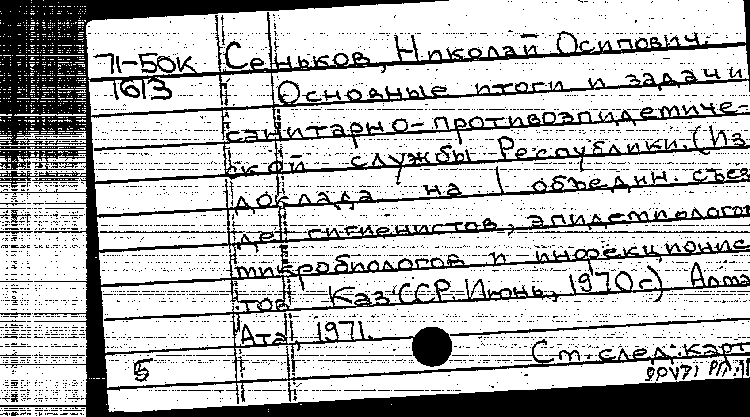 71-БОК Сеньков, Николай Осипович.
1613 Основные итоги и задачи
санитарно-противоэпидемиче-
ской службы Республики. (Из
доклада на I объедин. съез-
де гигиенистов, эпидемиологов
микробиологов и инфекционис
тов КазССР. Июнь, 1970г) Алма
Ата, 1971.
5 См. след. карт